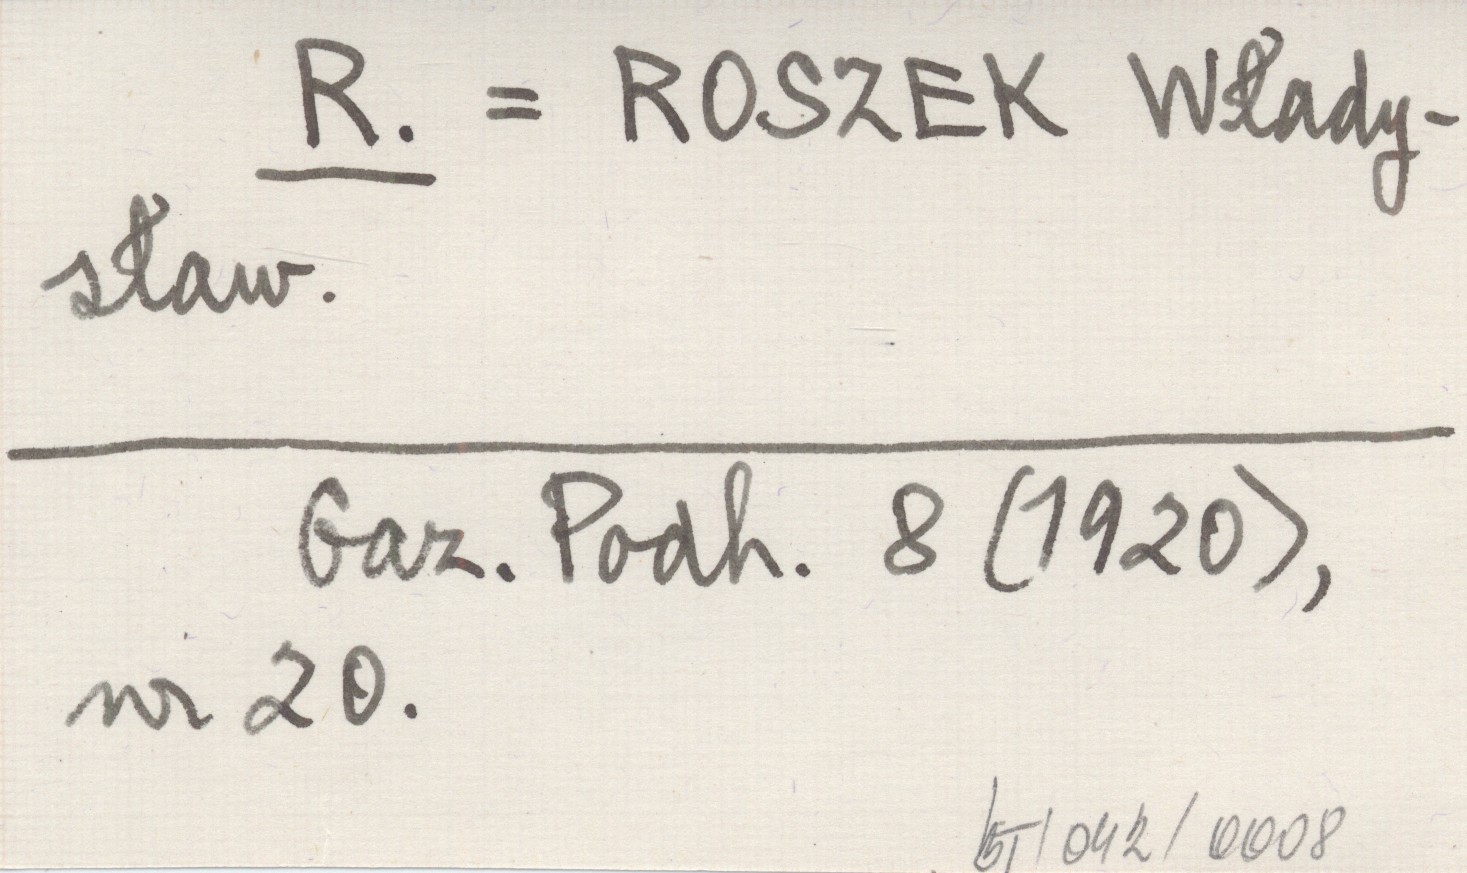 R. = ROSZEK Włady-
sław.
Gaz. Podh. 8 (1920),
nr 20.
/042/0008